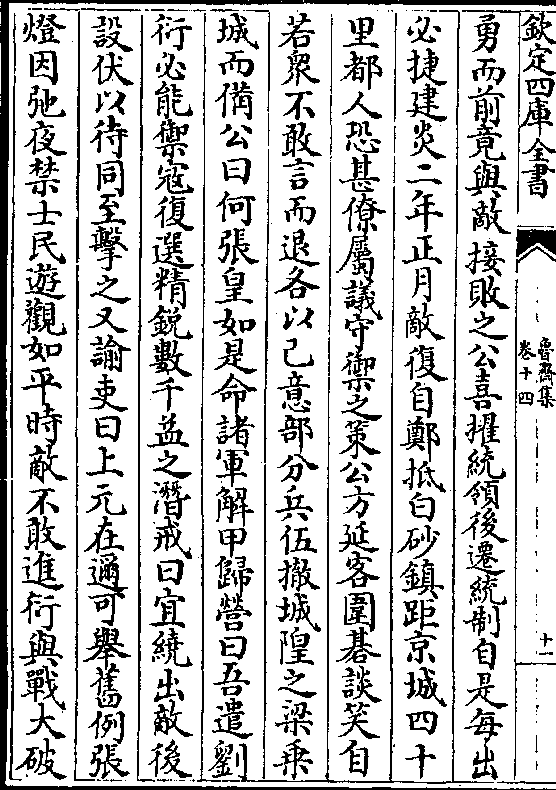 欽定四庫全書
魯齋集
卷十四
十一
勇而前竟與敵接敗之公喜擢統領後遷統制自是每出
必捷建炎二年正月敵復自鄭抵白砂鎮距京城四十
里都人恐甚僚屬議守禦之策公方延客圍碁談笑自
若衆不敢言而退各以己意部分兵伍撤城隍之梁乗
城而備公曰何張皇如是命諸軍解甲歸營曰吾遣劉
衍必能禦寇復選精鋭數千益之潛戒曰宜繞出敵後
設伏以待同至擊之又諭吏曰上元在邇可舉舊例張
燈因弛夜禁士民遊觀如平時敵不敢進衍與戰大破